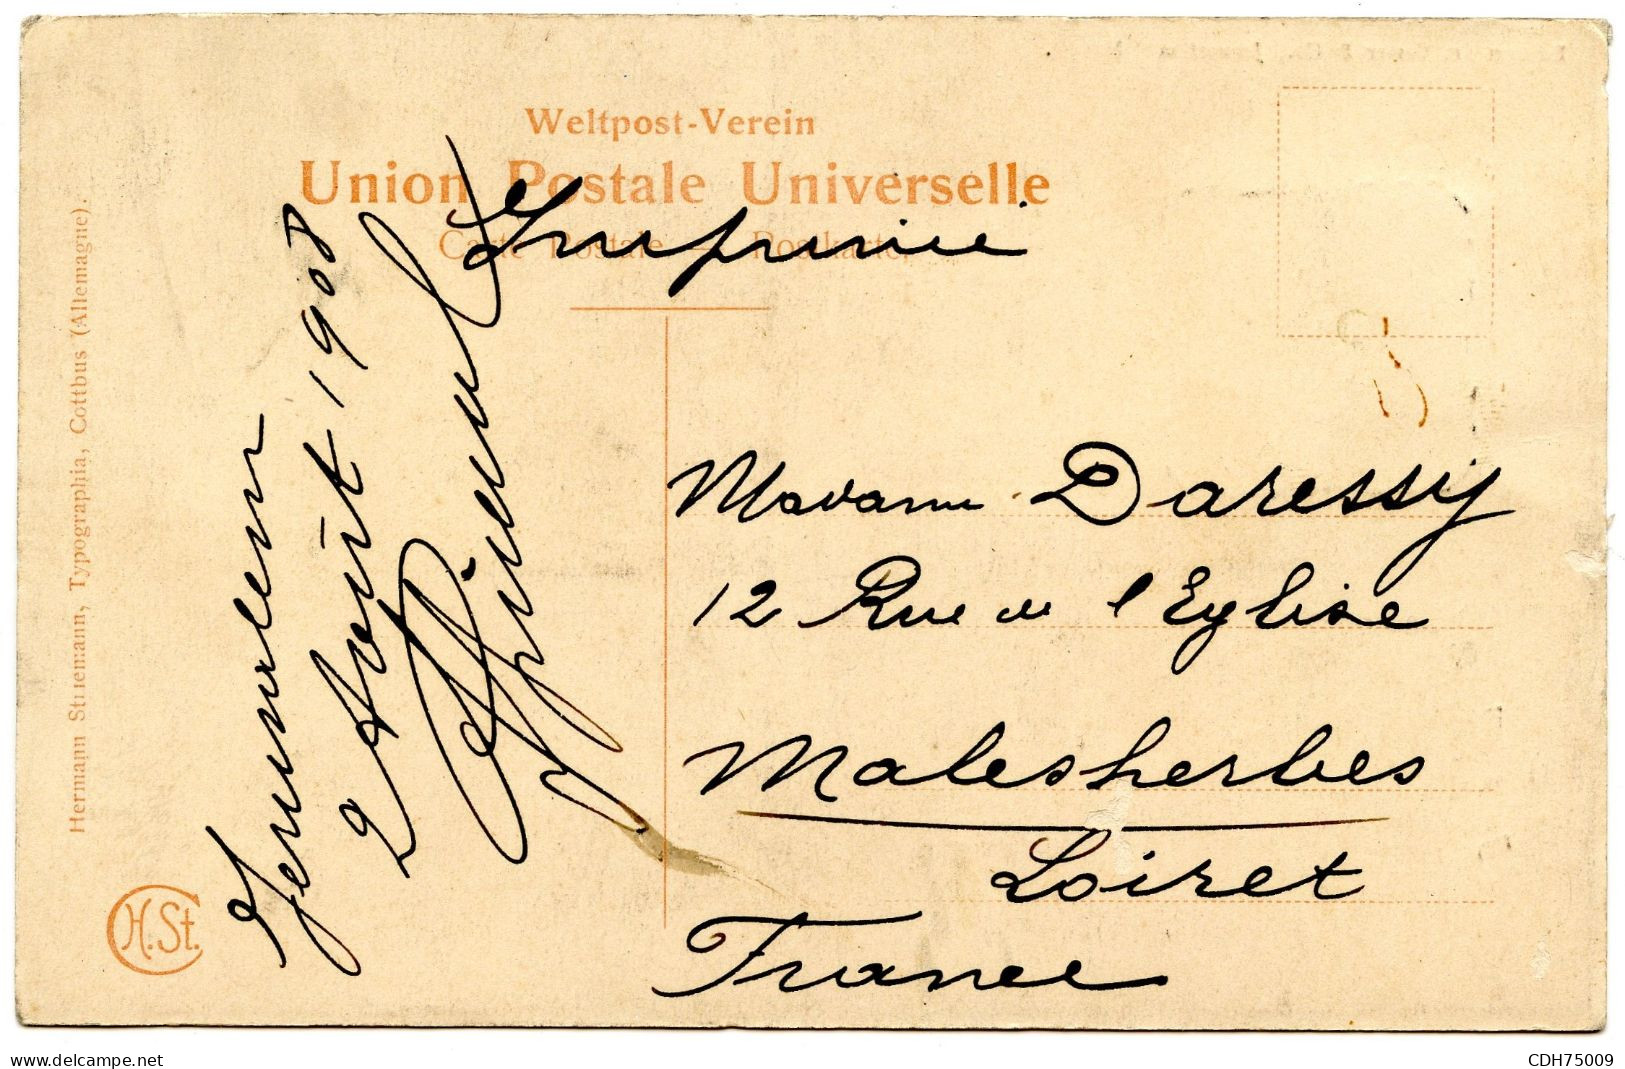 Weltpost-Verein
Union Postale Universelle
Carte Postale — Postkarte.
Imprimé
Hermann Striemann, Typographia, Cottbus (Allemagne).
H.St.
Jerusalem
2 Août 1908
Madame Daressy
12 Rue de l'Eglise
Malesherbes
Loiret
France
delcampe.net
CDH75009